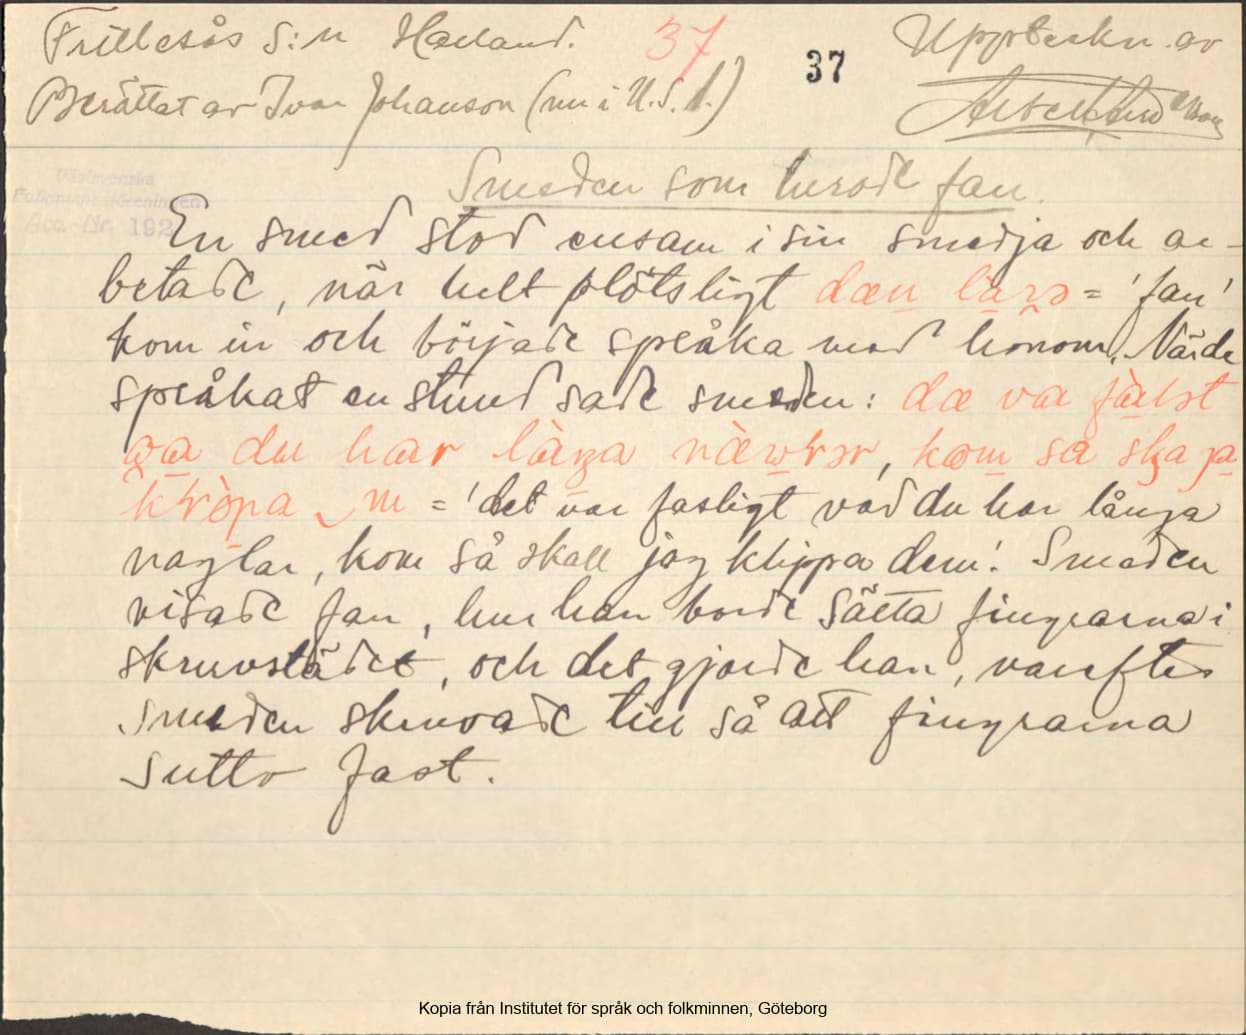 Frillesås S:n Halland. 37 37 Uppteckn. av
Berättat av Ivar Johanson (nu i U.S.A.)
Smeden som lurade fan.
Västsvenska
Folkminnesföreningen
Acc.-Nr. 192
En smed stod ensam i sin smedja och ar-
betade, när helt plötsligt dæn = 'fan'
kom in och började språka med honom. När de
språkat en stund sade smeden: dæ va
du har kom sa ska
= 'det var fasligt vad du har långa
naglar, kom så skall jag klippa dem'. Smeden
visade fan, hur han borde sätta fingrarna i
skruvstädet, och det gjorde han, varefter
smeden skruvade till så att fingrarna
sutto fast.
Kopia från Institutet för språk och folkminnen, Göteborg